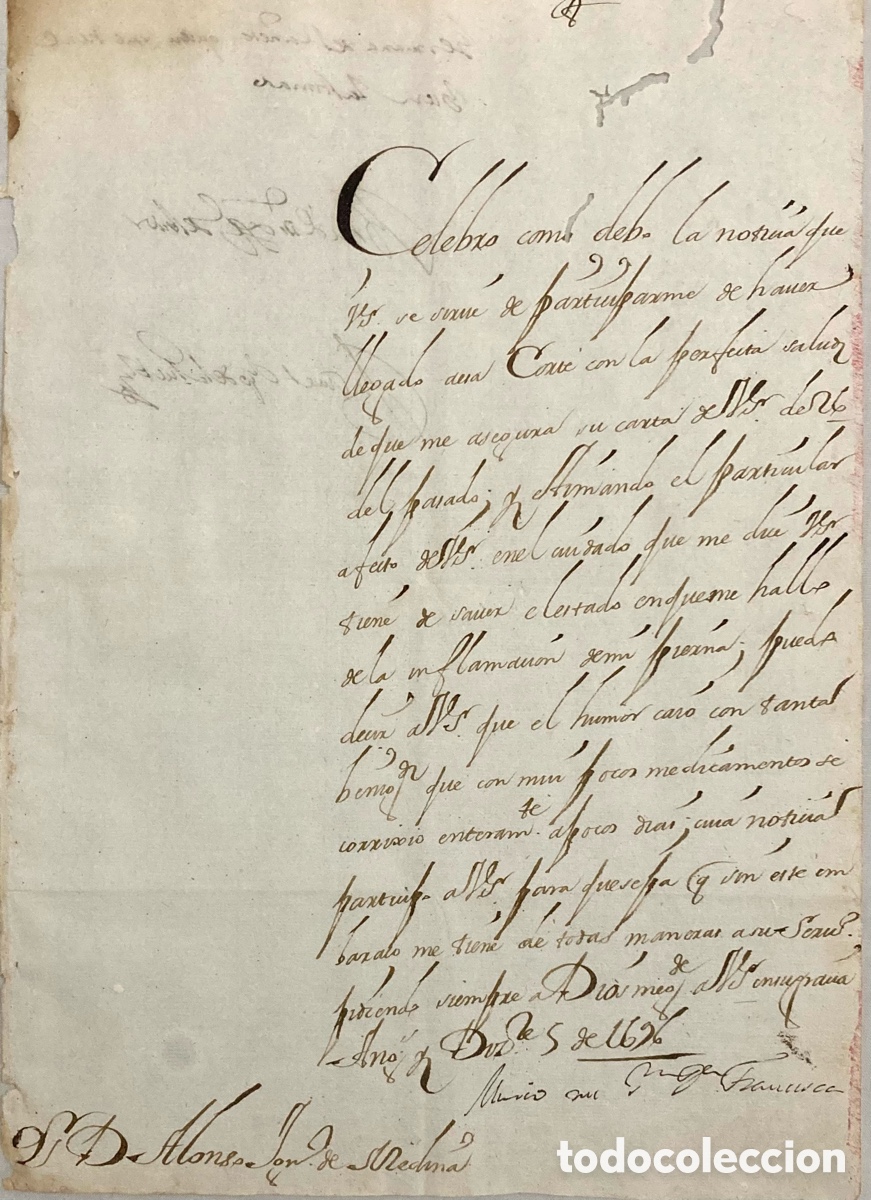 Celebro como debo la notiçia que
VS.r se sirve de partiçiparme de haver
llegado aesa Corte con la perfeita salud
deque me asegura su carta de VS.r de 26
del pasado; y estimando el particular
afeito de VS.r enel cuidado que me diçe VS.r
tiene de saver el estado enqueme hallo
de la inflamaçion demi pierna; puedo
deçir a VS.r que el humor caió con tanta
que con mui pocos medicamentos se
corrixio enteram.te apocos dias; cuia notiçia
partiçipo a VS.r para quesepa q sin este em
barazo me tiene de todas maneras a su Servi.º
pidiendo siempre a Dios me g.de a VS.r ensugraçia
Años y Diz.re 5 de 1696
Francisca
S.r D. Alonso de Medina
todocoleccion